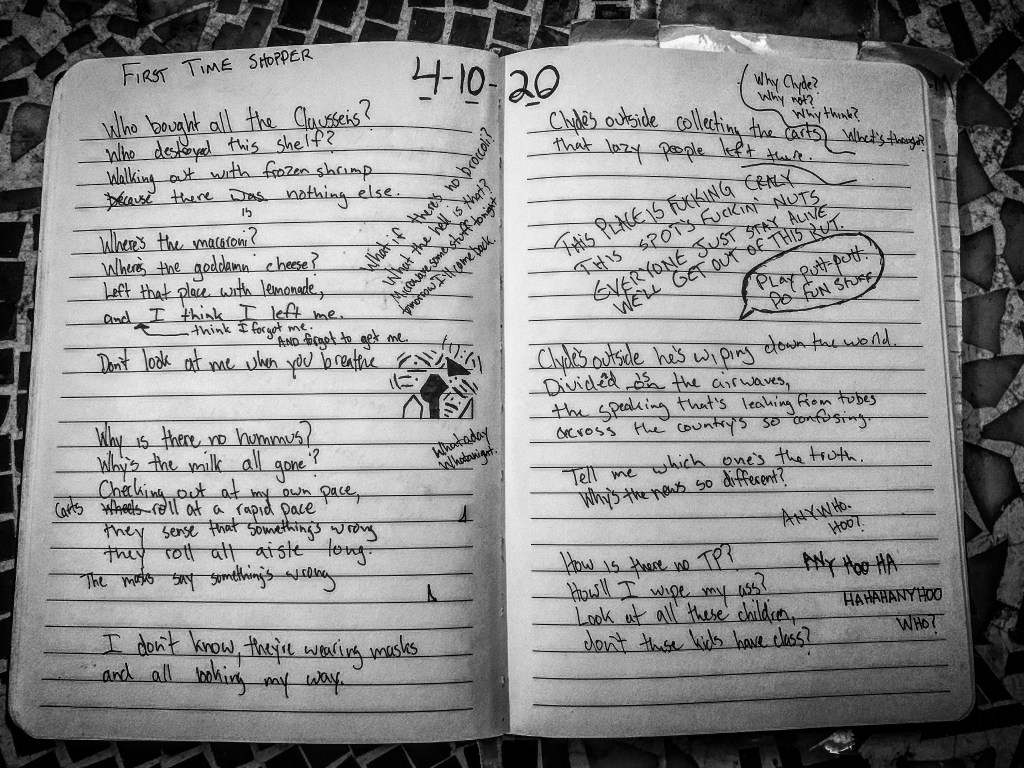 FIRST TIME SHOPPER
4-10-20
Who bought all the Claussens?
Who destroyed this shelf?
Walking out with frozen shrimp
because there was nothing else.
is
Where's the macaroni?
Where's the goddamn cheese?
Left that place with lemonade,
and I think I left me.
think I forgot me.
AND forgot to get me.
Don't look at me when you breathe
What if there's no broccoli?
What the hell is that?
Microwave some stuff tonight
tomorrow I'll come back.
Why is there no hummus?
Why's the milk all gone?
Whataday
Whatanight.
Checking out at my own pace,
Carts wheels roll at a rapid pace
they sense that something's wrong
they roll all aisle long.
The masks say something's wrong
I don't know, they're wearing masks
and all looking my way.
Why Clyde?
Why not?
Why think?
What's thought?
Clyde's outside collecting the carts
that lazy people left there.
THIS PLACE IS FUCKING CRAZY
THIS SPOT'S FUCKIN' NUTS
EVERYONE JUST STAY ALIVE
WE'LL GET OUT OF THIS RUT.
PLAY PUTT-PUTT.
DO FUN STUFF
Clyde's outside he's wiping down the world.
Divided is on the airwaves,
the speaking that's leaking from tubes
across the country's so confusing.
Tell me which one's the truth.
Why's the news so different?
ANYWHO.
HOO?
How is there no TP?
ANY HOO HA
How'll I wipe my ass?
HAHAHANYHOO
Look at all these children,
WHO?
don't these kids have class?